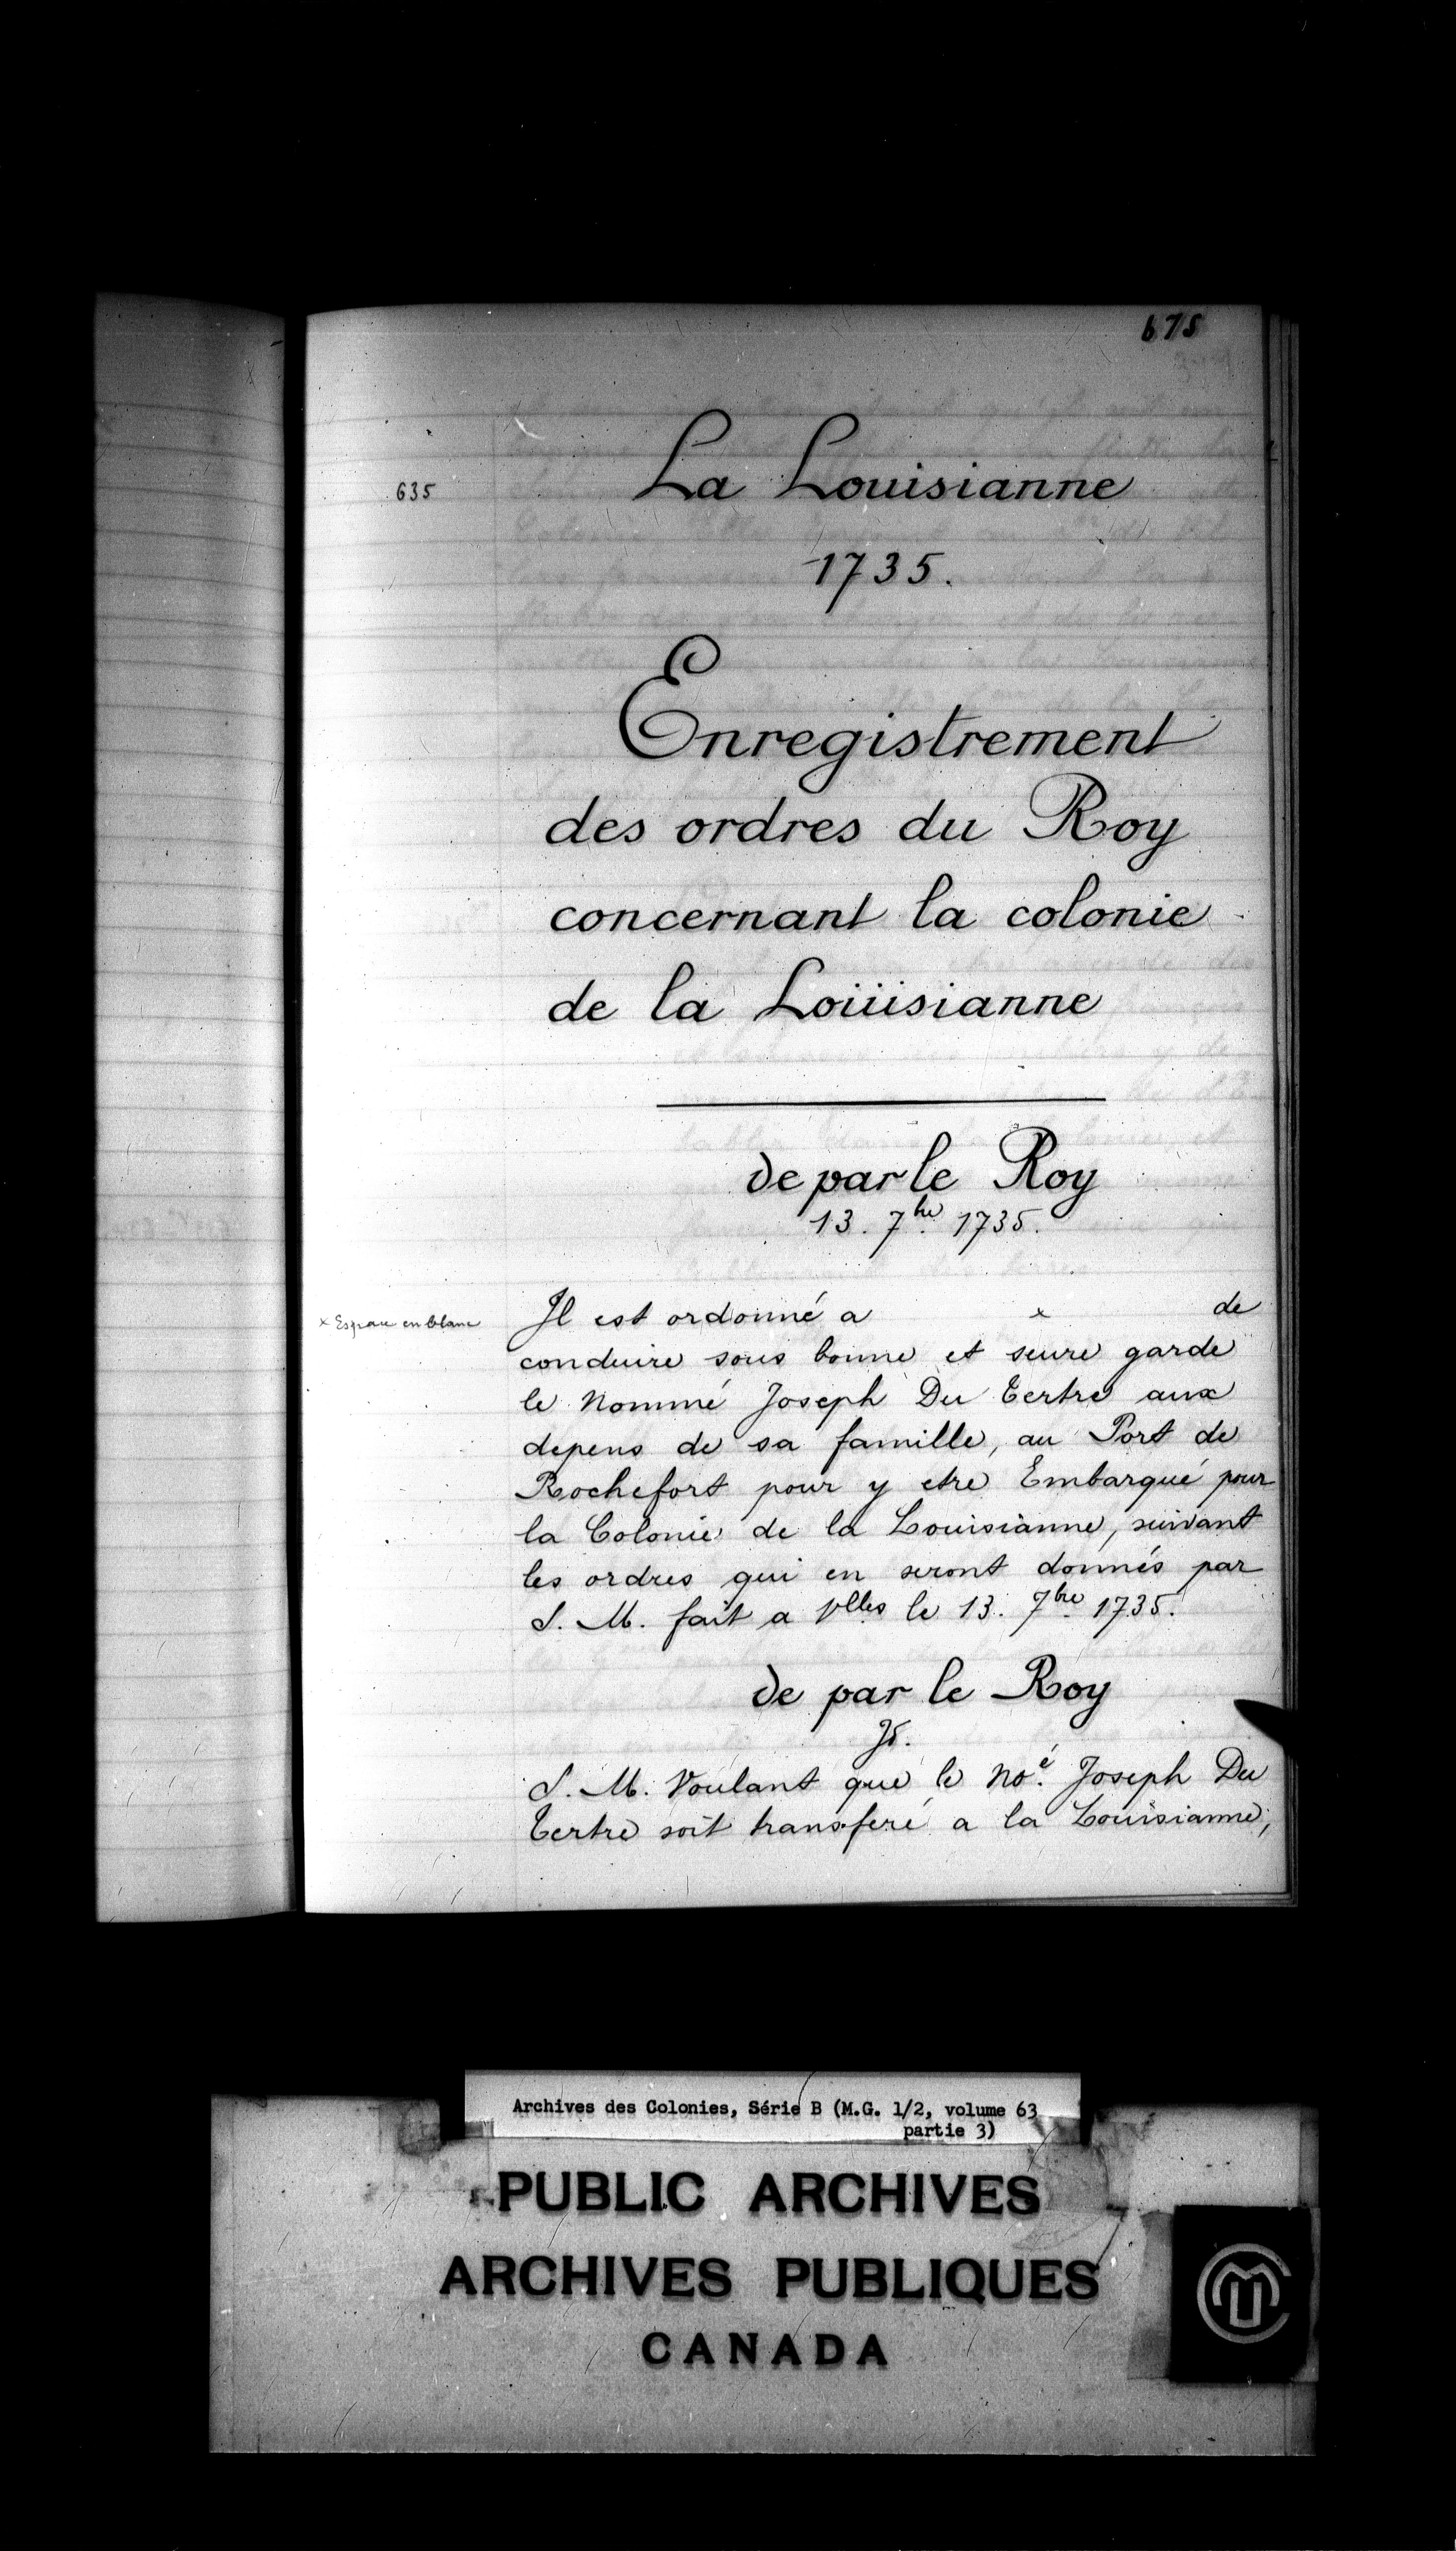 675
635
La Louisianne
1735.
Enregistrement
des ordres du Roy
concernant la colonie
de la Loüisianne
de par le Roy
13. 7bre 1735.
x Espace en blanc
Il est ordonné a x de
conduire sous bonne et seure garde
le Nommé Joseph Du Tertre aux
depens de sa famille, au Port de
Rochefort pour y etre Embarqué pour
la Colonie de la Louisianne, suivant
les ordres qui en seront donnés par
S. M. fait a Vlles le 13. 7bre 1735.
de par le Roy
Id.
S. M. Voulant que le Noé. Joseph Du
Tertre soit transferé a la Louisianne,
Archives des Colonies, Série B (M.G. 1/2, volume 63
partie 3)
PUBLIC ARCHIVES
ARCHIVES PUBLIQUES
CANADA